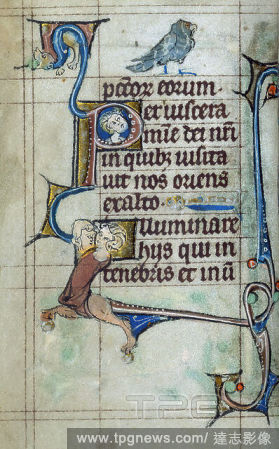 pctor̄ eorum
Per uiscera
mie dei nr̄i
in quibȝ uisita
uit nos oriens
exalto.
Illuminare
hijs qui in
tenebris et in ū
TPG
www.tpgnews.com/ 達志影像